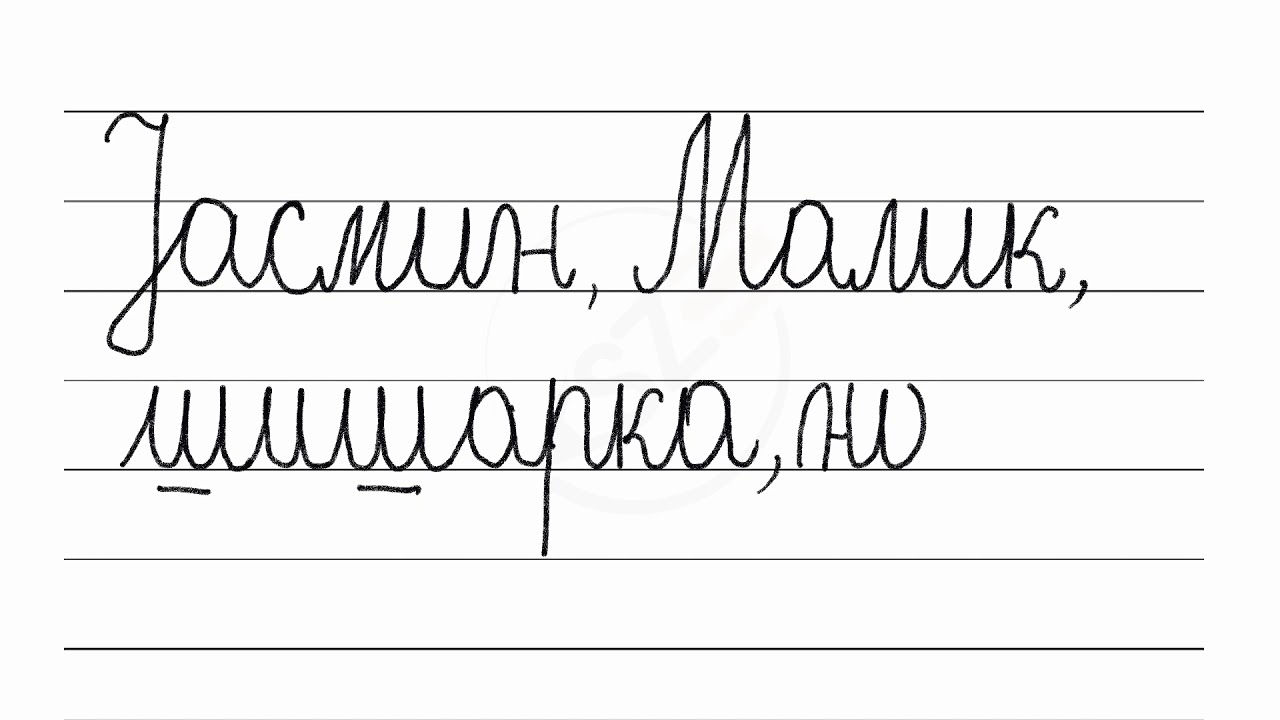 Јасмин, Малик,
шишарка,